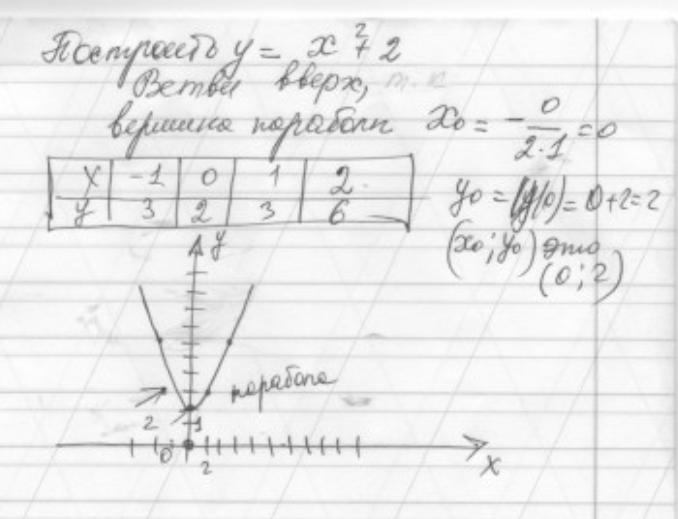 Построить y = x² + 2
Ветви вверх, т.к
вершина параболы x₀ = -0/2·1 = 0
x -1 0 1 2
y 3 2 3 6
y₀ = y(0) = 0+2=2
(x₀; y₀) это
(0; 2)
y
парабола
2 1
0
2
x